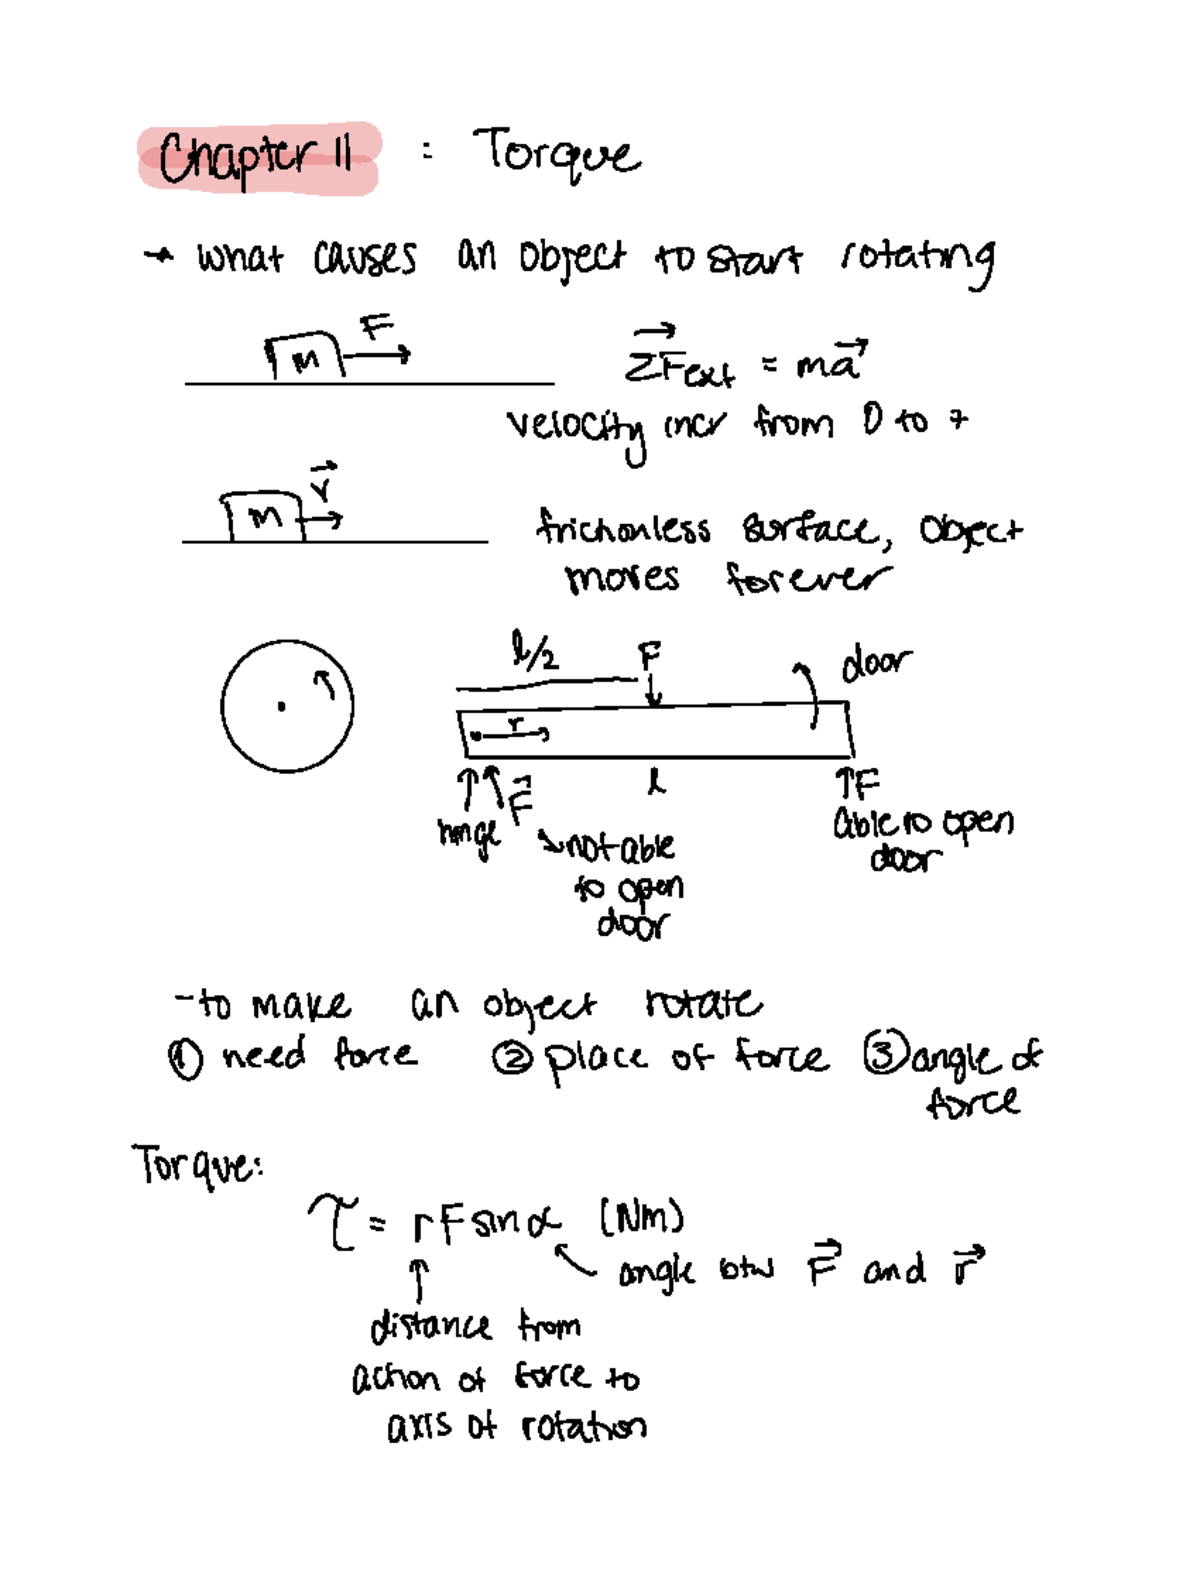 Chapter 11 : Torque
→ what causes an object to start rotating
F
m
ΣFext = ma
velocity incr from 0 to
v
m
frictionless surface, object
moves forever
l/2
F
door
r
l
F
F
hinge
able to open
door
↘ not able
to open
door
- to make an object rotate
① need force ② place of force ③ angle of
force
Torque:
τ = rF sin α (Nm)
angle btw F and r
distance from
action of force to
axis of rotation